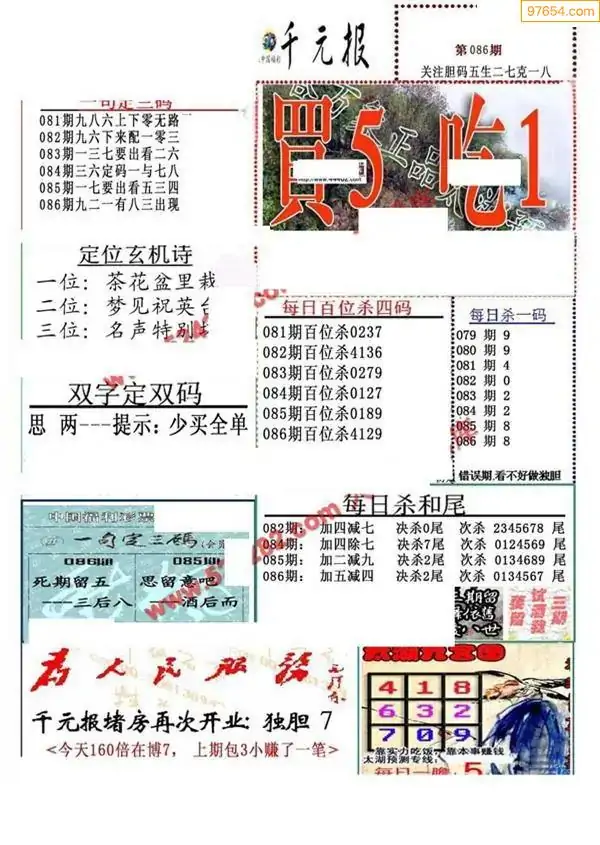 97654.com
千元报
第086期
关注胆码五生二七克一八
一句定三码
081期九八六上下零无路
082期九六下来配一零三
083期一三七要出看二六
084期三六定码一与七八
085期一七要出看五三四
086期九二一有八三出现
買5吃1
定位玄机诗
一位：茶花盆里栽
二位：梦见祝英台
三位：名声特别
每日百位杀四码
081期百位杀0237
082期百位杀4136
083期百位杀0279
084期百位杀0127
085期百位杀0189
086期百位杀4129
每日杀一码
079 期 9
080 期 9
081 期 4
082 期 0
083 期 2
084 期 2
085 期 8
086 期 8
错误期.看不好做独胆
双字定双码
思 两---提示：少买全单
每日杀和尾
082期： 加四减七 决杀0尾 次杀 2345678 尾
084期： 加四除七 决杀7尾 次杀 0124569 尾
085期： 加二减九 决杀2尾 次杀 0134689 尾
086期： 加五减四 决杀2尾 次杀 0134567 尾
中国福利彩票
一句定三码
086期 085期
死期留五 思留意吧
---三后八 ---酒后而
为人民服务
千元报堵房再次开业：独胆 7
<今天160倍在博7, 上期包3小赚了一笔>
4 1 8
6 3 2
7 0 9
靠实力吃饭, 靠本事赚钱
太湖预测专线:
每日一胆 5